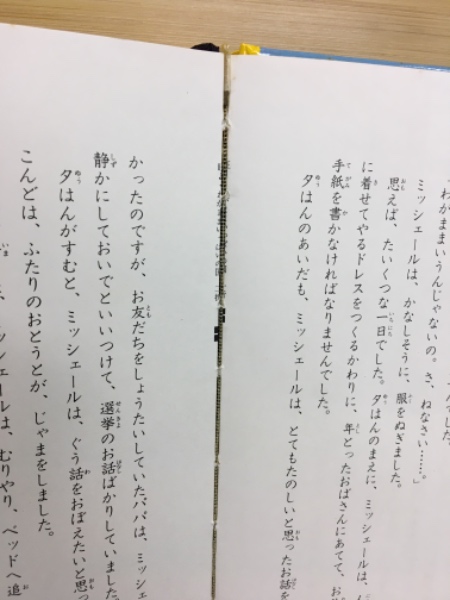 わがままいうんじゃないの。さ、ねなさい……。」
ミッシェールは、かなしそうに、服をぬぎました。
思えば、たいくつな一日でした。夕はんのまえに、ミッシェールは、
に着せてやるドレスをつくるかわりに、年とったおばさんにあてて、お
手紙を書かなければなりませんでした。
夕はんのあいだも、ミッシェールは、とてもたのしいと思ったお話を
かったのですが、お友だちをしょうたいしていたパパは、ミッシ
静かにしておいでといいつけて、選挙のお話ばかりしていました
夕はんがすむと、ミッシェールは、ぐう話をおぼえたいと思っ
こんどは、ふたりのおとうとが、じゃまをしました。
シェールは、むりやり、ベッドへ追